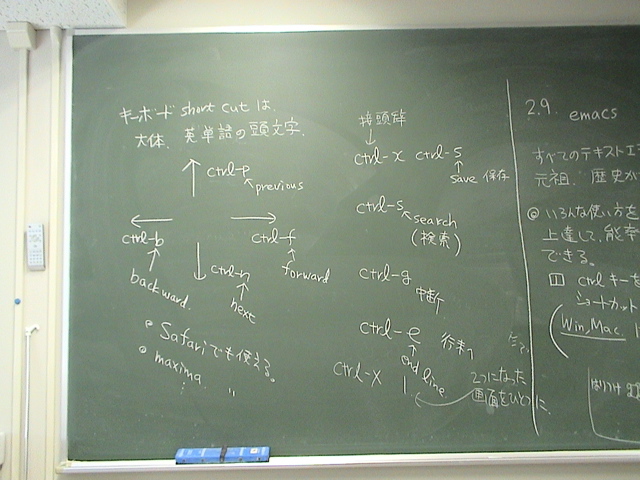 キーボード short cut は、
大体、英単語の頭文字.
ctrl-p
previous
ctrl-b
backward.
ctrl-f
forward
ctrl-n
next
Safariでも使える。
maxima 〃
接頭辞
ctrl-x ctrl-s
save 保存
ctrl-s
search
(検索)
ctrl-g
中断
ctrl-e 行末へ
end line.
ctrl-x 1
2つになった
画面をひとつに
2.9. emacs
すべてのテキストエ
元祖. 歴史が
◎ いろんな使い方を
上達して、能率
できる。
1 ctrl キーを
ショートカット
(Win, Mac.